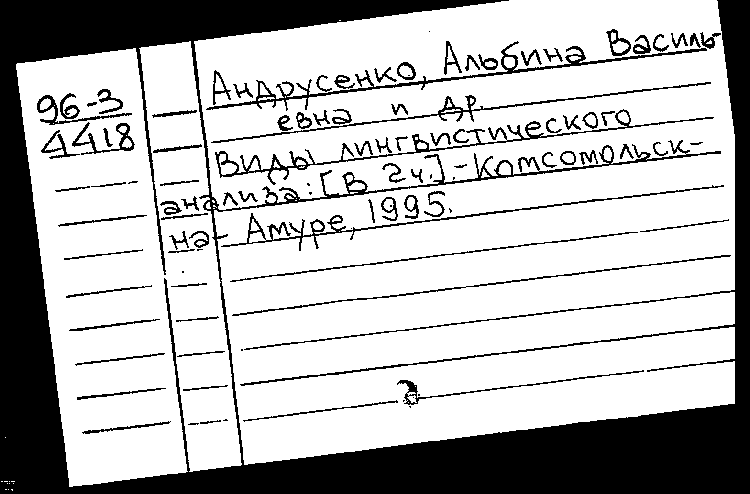 96-3
4418
Андрусенко, Альбина Василь-
евна и др.
Виды лингвистического
анализа: [В 2ч.].-Комсомольск-
на-Амуре, 1995.